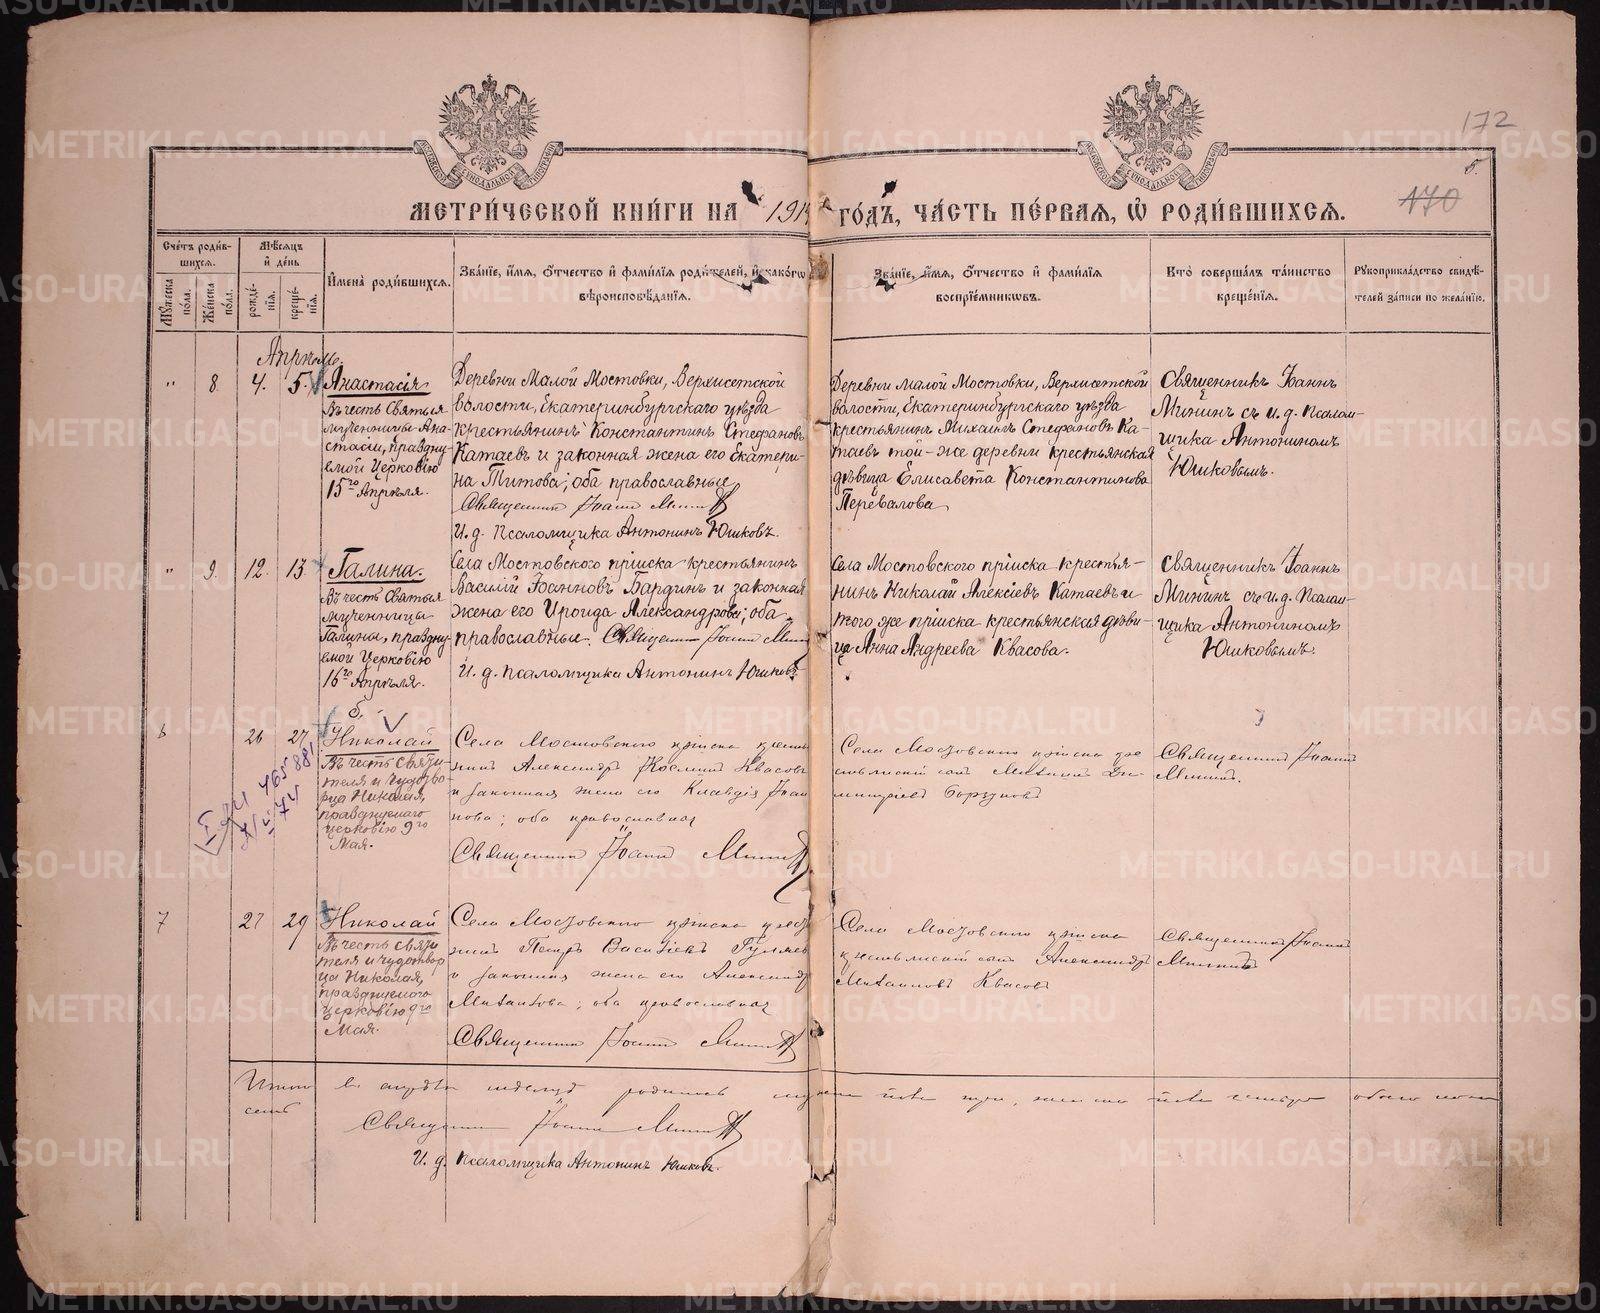 172
170
б.
МЕТРИ́ЧЕСКОЙ КНИ́ГИ НА 191 ГО́ДЪ, ЧА́СТЬ ПЕ́РВАЯ, Ѿ РОДИ́ВШИХСЯ.
Сче́тъ роди́вшихся.
Му́жеска по́ла.
Же́нска по́ла.
Мѣ́сяцъ и҆ де́нь
рожде́нїя.
креще́нїя.
И҆мена̀ роди́вшихся.
Зва́нїе, и҆́мя, ѻ҆́тчество и҆ фами́лїя роди́телей, и҆ како́гѡ
вѣроисповѣ́данїя.
Зва́нїе, и҆́мя, ѻ҆́тчество и҆ фами́лїя
воспрїе́мникѡвъ.
Кто̀ соверша́лъ та́инство
креще́нїя.
Рꙋкоприкла́дство свидѣ́-
телей за́писи по жела́нїю.
Апрѣль.
" 8. 4. 5. Анастасія
Въ честь Святыя
мученницы Ана-
стасіи, праздну-
емой Церковію
15го Апрѣля.
Деревни Малой Мостовки, Верхисетской
волости, Екатеринбургскаго уѣзда
крестьянинъ Константинъ Стефановъ
Катаевъ и законная жена его Екатери-
на Титова; оба православные
Священник Іоанн Минин
И. д. Псаломщика Антонинъ Юшковъ.
Деревни Малой Мостовки, Верхисетской
волости, Екатеринбургскаго уѣзда
крестьянинъ Михаилъ Стефановъ Ка-
таевъ той-же деревни крестьянская
дѣвица Елисавета Константинова
Перевалова
Священникъ Іоаннъ
Мининъ съ и. д. Псалом-
щика Антониномъ
Юшковымъ.
" 9. 12. 13. Галина.
Въ честь Святыя
мученницы
Галины, праздну
емой Церковію
16го Апрѣля.
Села Мостовского пріиска крестьянинъ
Василій Іоанновъ Бардинъ и законная
жена его Ироида Александрова; оба
православные. Священник Іоанн Минин
И. д. Псаломщика Антонинъ Юшковъ
Села Мостовского пріиска кресть-
нинъ Николай Алексіевъ Катаевъ и
того же пріиска крестьянская дѣви-
ца Анна Андреева Квасова.
Священникъ Іоаннъ
Мининъ съ и. д. Псалом-
щика Антониномъ
Юшковымъ.
б.
6 26 27 Николай
Въ честь Святи
теля и Чудотво-
рца Николая,
празднуемаго
церковію 9го
Мая.
Села Мостовского пріиска кресть
нин Александръ Квасовъ
и законная жена его Клавдія Іоан
нова; оба православная
Священник Іоанн Минин
Села Мостовского пріиска кре
стьянскій сынъ Ди-
митріевъ
Священник Іоанн
Минин.
7 27 29 Николай
Въ честь Святи
теля и чудотвор
ца Николая,
празднуемаго
церковію 9го
Мая.
Села Мостовского пріиска крест
нин Петръ Василіевъ Гуляев
и законная жена его Александра
Михаилова; оба православная
Священник Іоанн Минин
Села Мостовского пріиска
крестьянскій сынъ Александръ
Михаиловъ Квасовъ
Священник Іоанн
Минин
Итого въ апрѣлѣ мѣсяцѣ родилось мужска пола три, женска пола четыре обоего пола
семь
Священник Іоанн Минин
И. д. Псаломщика Антонинъ Юшковъ.
METRIKI.GASO-URAL.RU